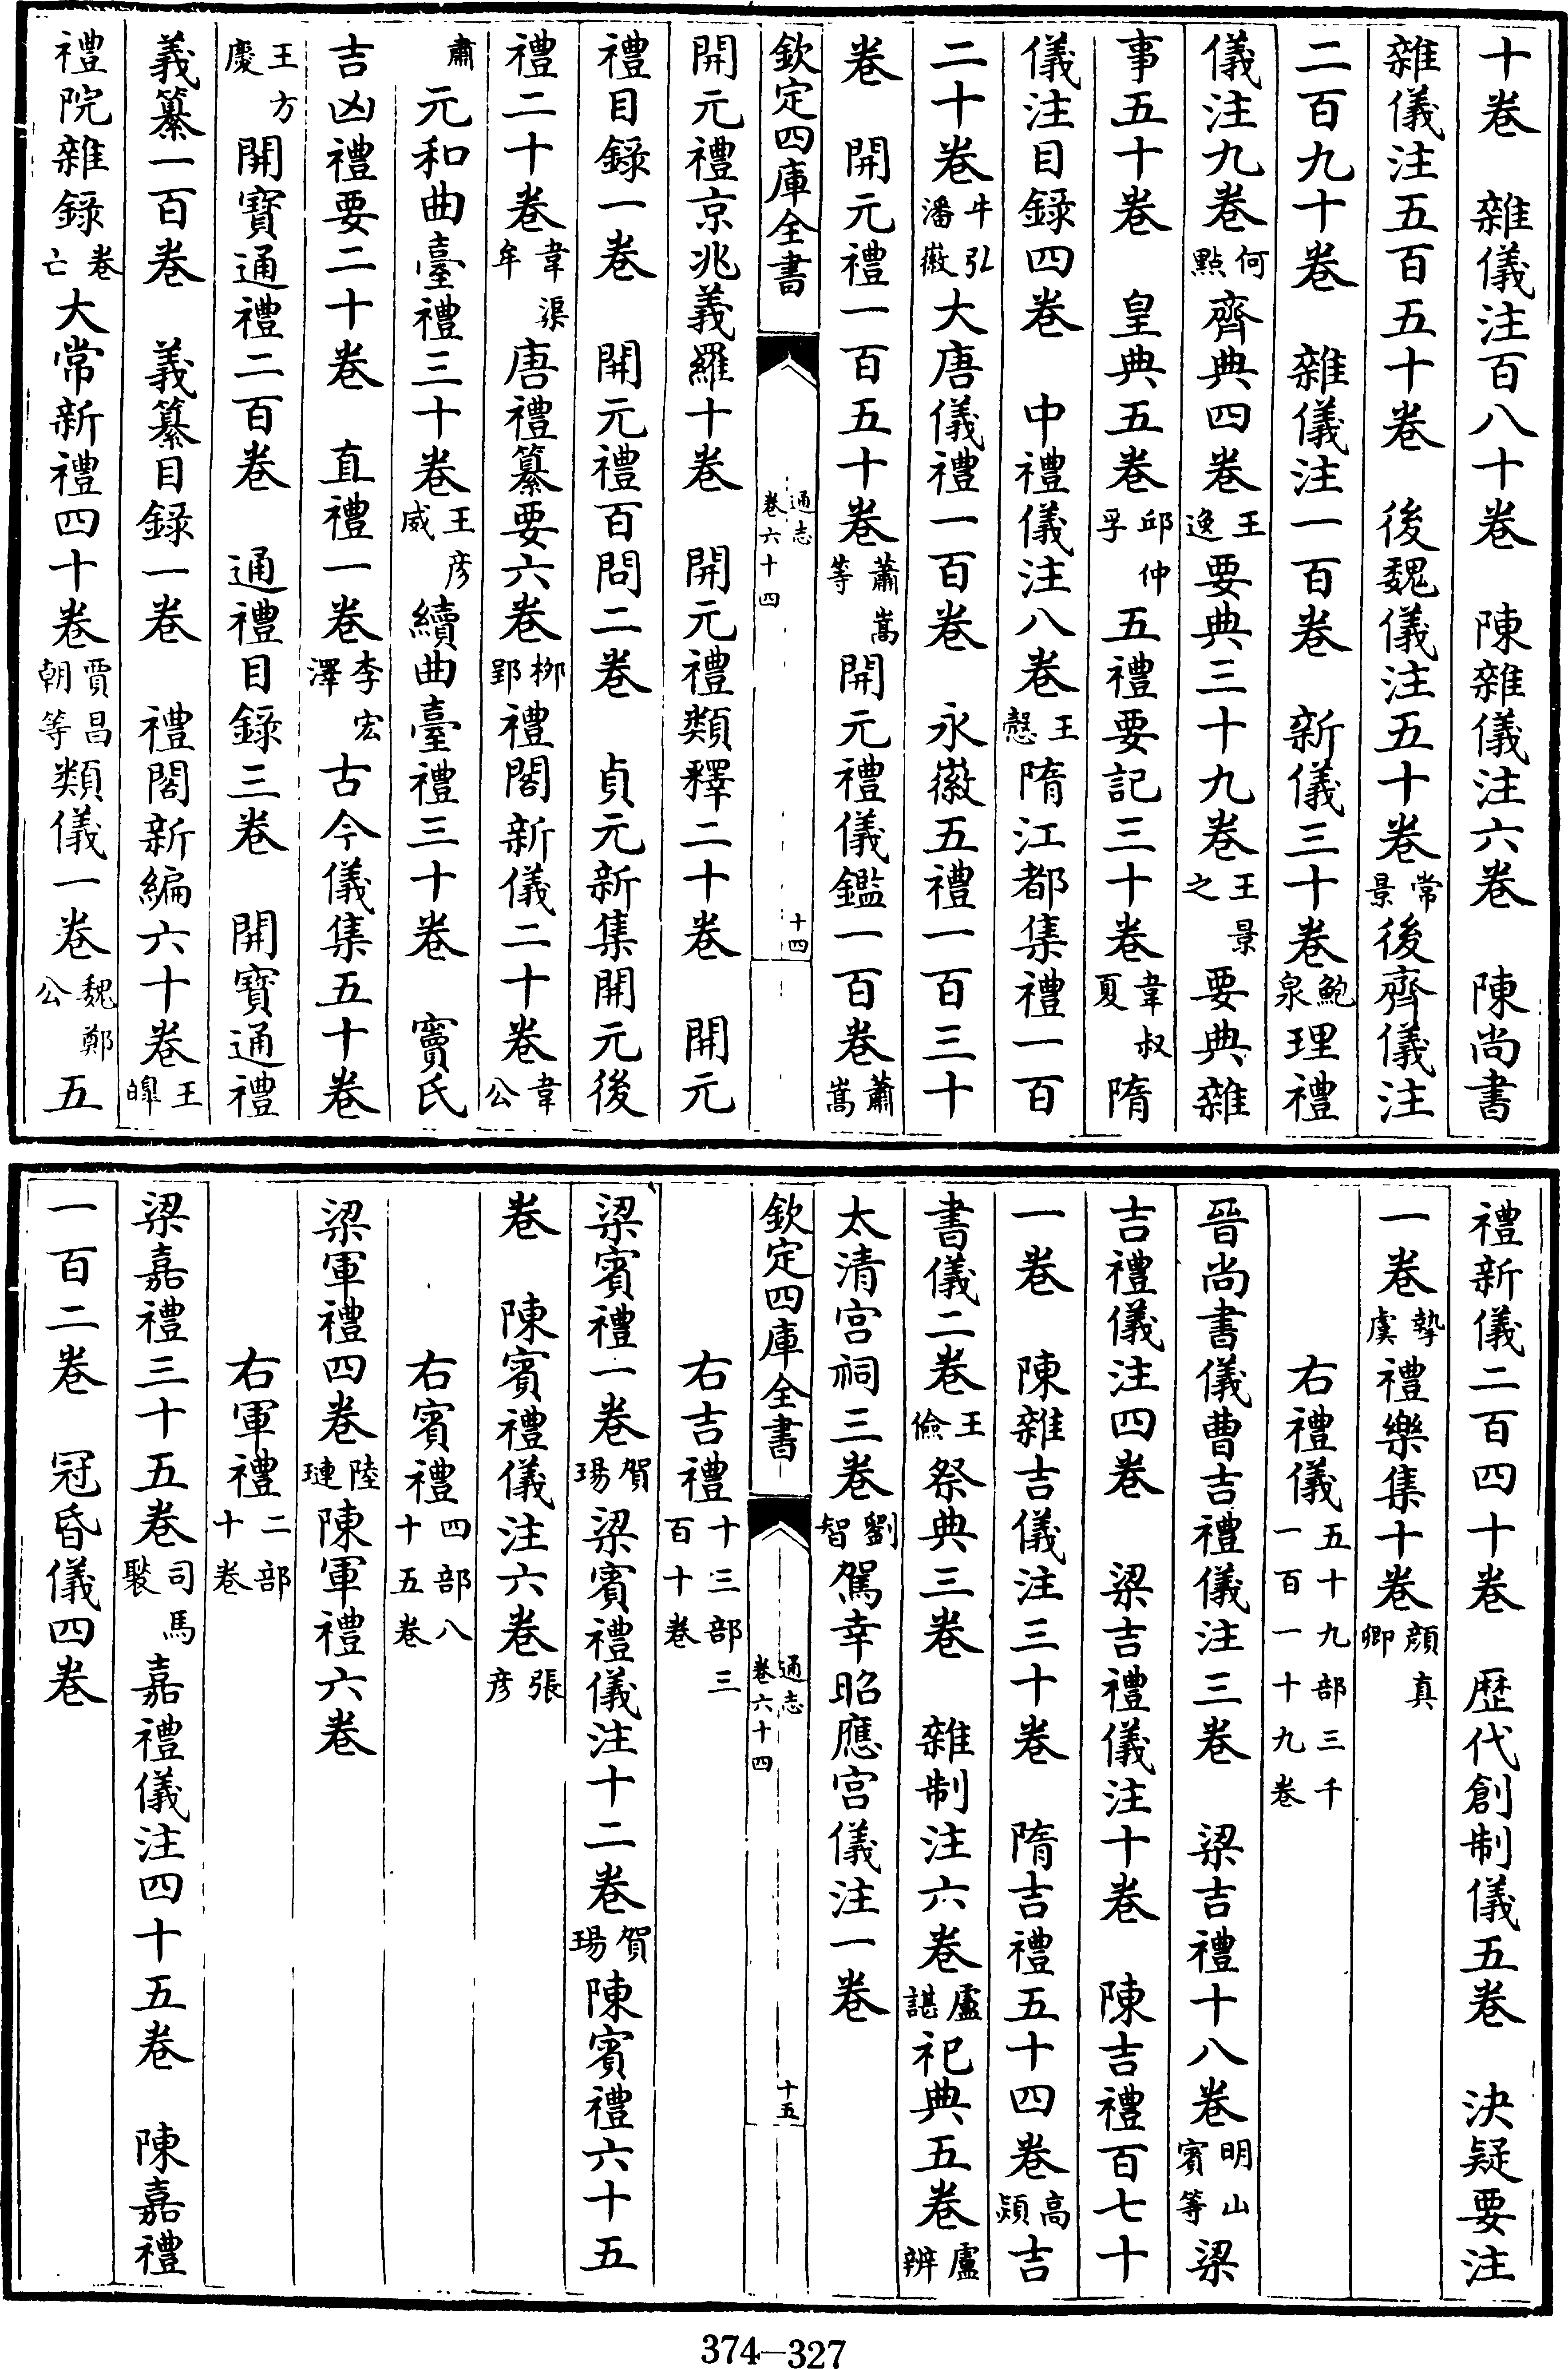 十卷　雜儀注百八十卷　陳雜儀注六卷　陳尚書
雜儀注五百五十卷　後魏儀注五十卷常景後齊儀注
二百九十卷　雜儀注一百卷　新儀三十卷鮑泉理禮
儀注九卷何㸃齊典四卷王逸要典三十九卷王景之要典雜
事五十卷　皇典五卷邱仲孚五禮要記三十卷韋叔夏隋
儀注目録四卷　中禮儀注八卷王慤隋江都集禮一百
二十卷牛弘潘徽大唐儀禮一百卷　永徽五禮一百三十
卷　開元禮一百五十卷蕭嵩等開元禮儀鑑一百卷蕭嵩
欽定四庫全書　通志卷六十四　十四
開元禮京兆義羅十卷　開元禮類釋二十卷　開元
禮目録一卷　開元禮百問二卷　貞元新集開元後
禮二十卷韋渠牟唐禮纂要六卷柳郢禮閣新儀二十卷韋公
肅元和曲臺禮三十卷王彦威續曲臺禮三十卷　竇氏
吉凶禮要二十卷　直禮一卷李宏澤古今儀集五十卷
王方慶開寶通禮二百卷　通禮目録三卷　開寶通禮
義纂一百卷　義纂目録一卷　禮閣新編六十卷王皥
禮院雜録卷亡大常新禮四十卷賈昌朝等類儀一卷魏鄭公五
禮新儀二百四十卷　歴代創制儀五卷　決疑要注
一卷摯虞禮樂集十卷顔真卿
右禮儀五十九部三千一百一十九卷
晉尚書儀曹吉禮儀注三卷　梁吉禮十八卷明山賓等梁
吉禮儀注四卷　梁吉禮儀注十卷　陳吉禮百七十
一卷　陳雜吉儀注三十卷　隋吉禮五十四卷高熲吉
書儀二卷王儉祭典三卷　雜制注六卷盧諶祀典五卷盧辨
太清宮祠三卷劉智駕幸昭應宮儀注一卷
欽定四庫全書　通志卷六十四　十五
右吉禮十三部三百十卷
梁賓禮一卷賀瑒梁賓禮儀注十二卷賀瑒陳賓禮六十五
卷　陳賓禮儀注六卷張彦
右賓禮四部八十五卷
梁軍禮四卷陸璉陳軍禮六卷
右軍禮二部十卷
梁嘉禮三十五卷司馬褧嘉禮儀注四十五卷　陳嘉禮
一百二卷　冠昏儀四卷
374—327